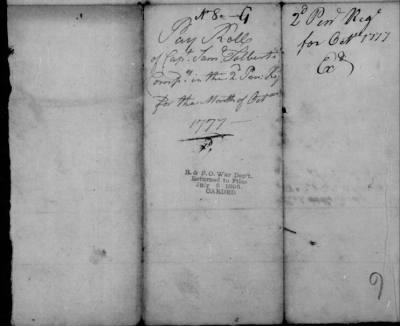 N 8 - G
Pay Rolls
of Capt. Saml. Tolberts
Compy. in the 2 Pen. Rg
for the Month of Octr
1777
R. & P. O. War Dep't.
Returned to Files
July 5
CARDED
2d Penn Regt
for Octr 1777
Exd
9